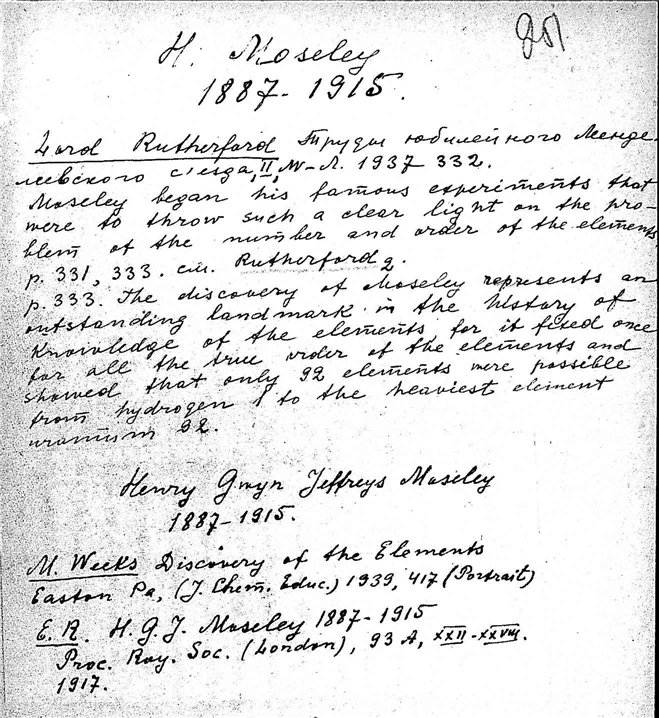 951
H. Moseley
1887-1915.
Lord Rutherford Труды юбилейного Менде-
леевского с'езда, II, М-Л. 1937 332.
Moseley began his famous experiments that
were to throw such a clear light on the pro-
blem of the number and order of the elements
p. 331, 333. см. Rutherford 2.
p. 333. The discovery of Moseley represents an
outstanding landmark in the history of
knowledge of the elements, for it fixed once
for all the true order of the elements and
showed that only 92 elements were possible
from hydrogen 1 to the heaviest element
uranium 92.
Henry Gwyn Jeffreys Moseley
1887-1915.
M. Weeks Discovery of the Elements
Easton Pa, (J. Chem. Educ.) 1939, 417 (Portrait)
E. R. H. G. J. Moseley 1887-1915
Proc. Roy. Soc. (London), 93 A, XXII-XXVIII.
1917.